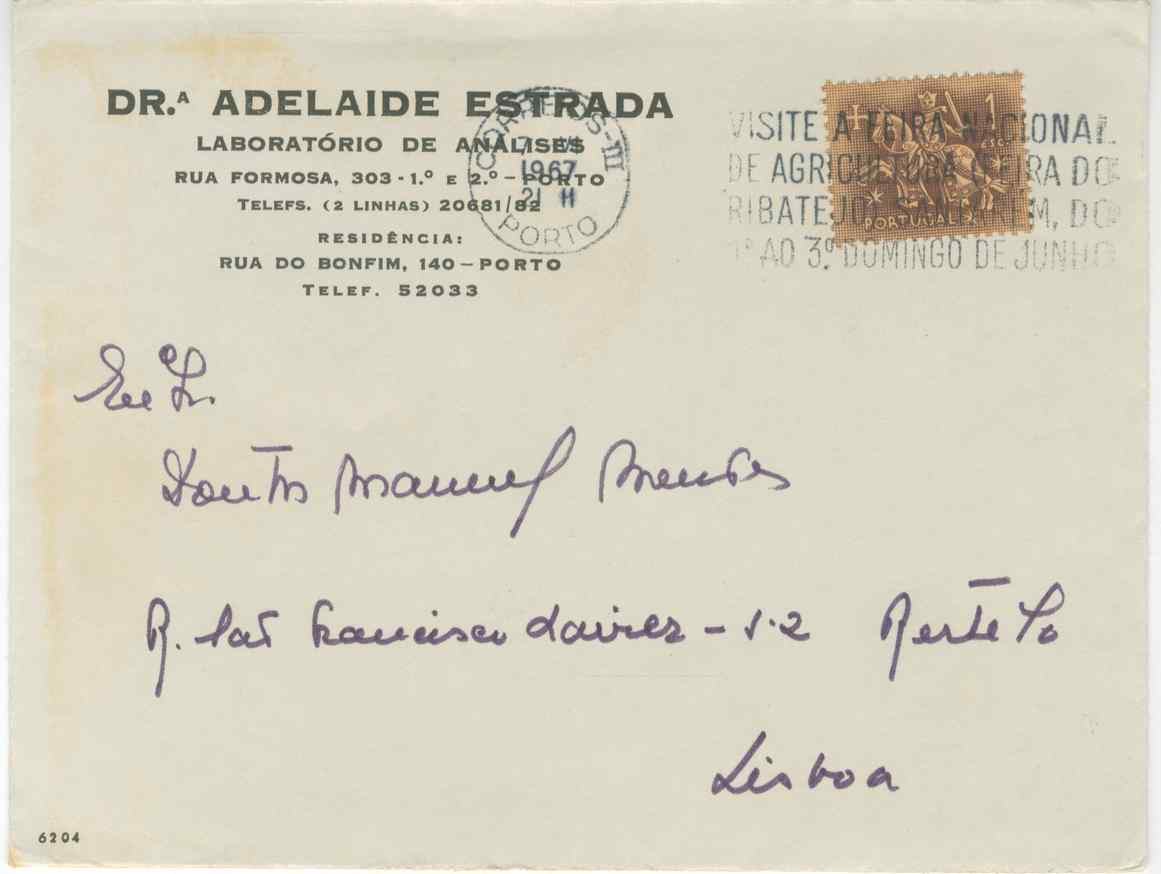 DR.ª ADELAIDE ESTRADA
LABORATÓRIO DE ANÁLISES
RUA FORMOSA, 303 - 1.º E 2.º - PORTO
TELEFS. (2 LINHAS) 20681/82
RESIDÊNCIA:
RUA DO BONFIM, 140 - PORTO
TELEF. 52033
CORREIOS-III
1967
21 H
PORTO
VISITE A FEIRA NACIONAL
DE AGRICULTURA (FEIRA DO
RIBATEJO) SANTARÉM, DO
1º AO 3.º DOMINGO DE JUNHO
1
ESC.
PORTUGAL
Doutor Manuel Mendes
R. São Francisco Xavier - 1·2 Restelo
Lisboa
6204